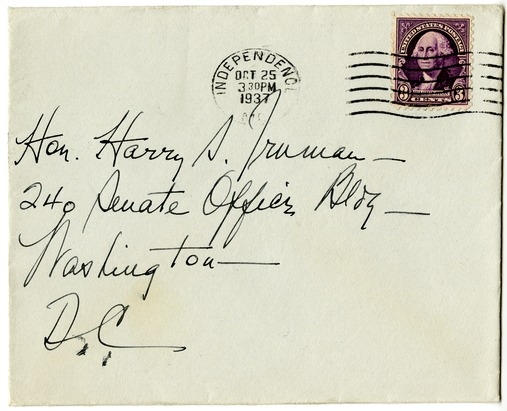 INDEPENDENC
OCT 25
3 30 PM
1937
UNITED STATES POSTAGE
3 CENTS 3
Hon. Harry S. Truman —
240 Senate Office Bldg —
Washington —
D C